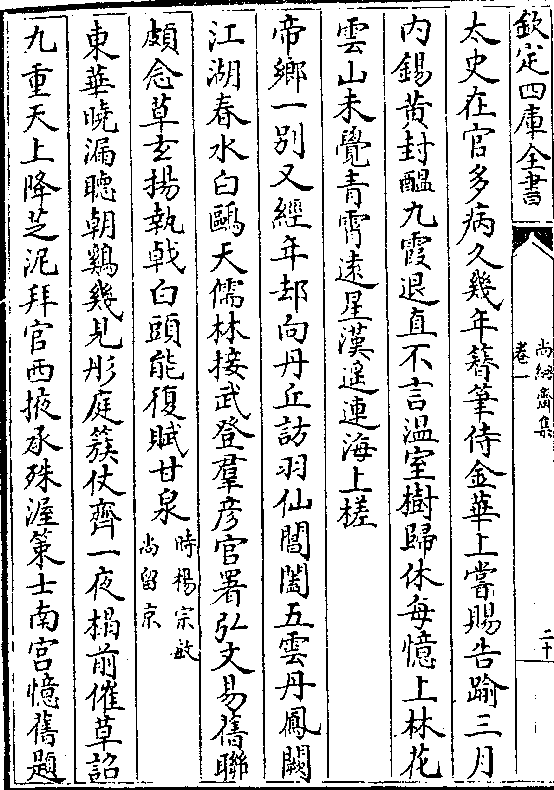 欽定四庫全書
尚絅齋集
卷一
二十
太史在官多病久幾年簪筆侍金華上嘗賜告踰三月
内錫黄封醖九霞退直不言温室樹歸休每憶上林花
雲山未覺青霄逺星漢遥連海上槎
帝鄉一别又經年却向丹丘訪羽仙閶闔五雲丹鳳闕
江湖春水白鷗天儒林接武登羣彦官署弘文易舊聯
頗念草玄揚執戟白頭能復賦甘泉時楊宗敏
尚留京
東華曉漏聴朝鷄幾見彤庭簇仗齊一夜榻前催草詔
九重天上降芝泥拜官西掖承殊渥策士南宫憶舊題